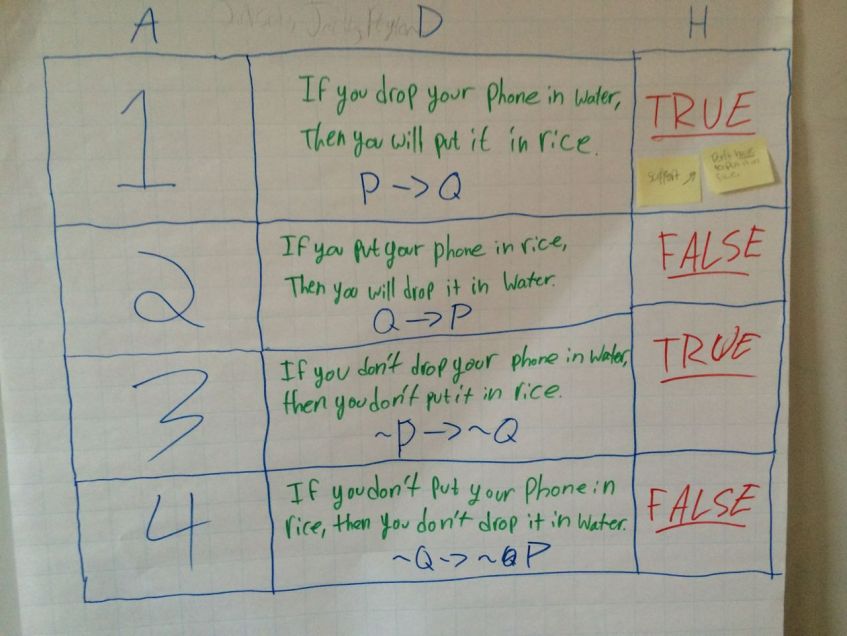 A D H
1
If you drop your phone in water,
Then you will put it in rice.
P → Q
TRUE
support ↗
Don't have
to put it in
rice.
2
If you put your phone in rice,
Then you will drop it in water.
Q → P
FALSE
3
If you don't drop your phone in water,
then you don't put it in rice.
~P → ~Q
TRUE
4
If you don't put your phone in
rice, then you don't drop it in water.
~Q → ~P
FALSE